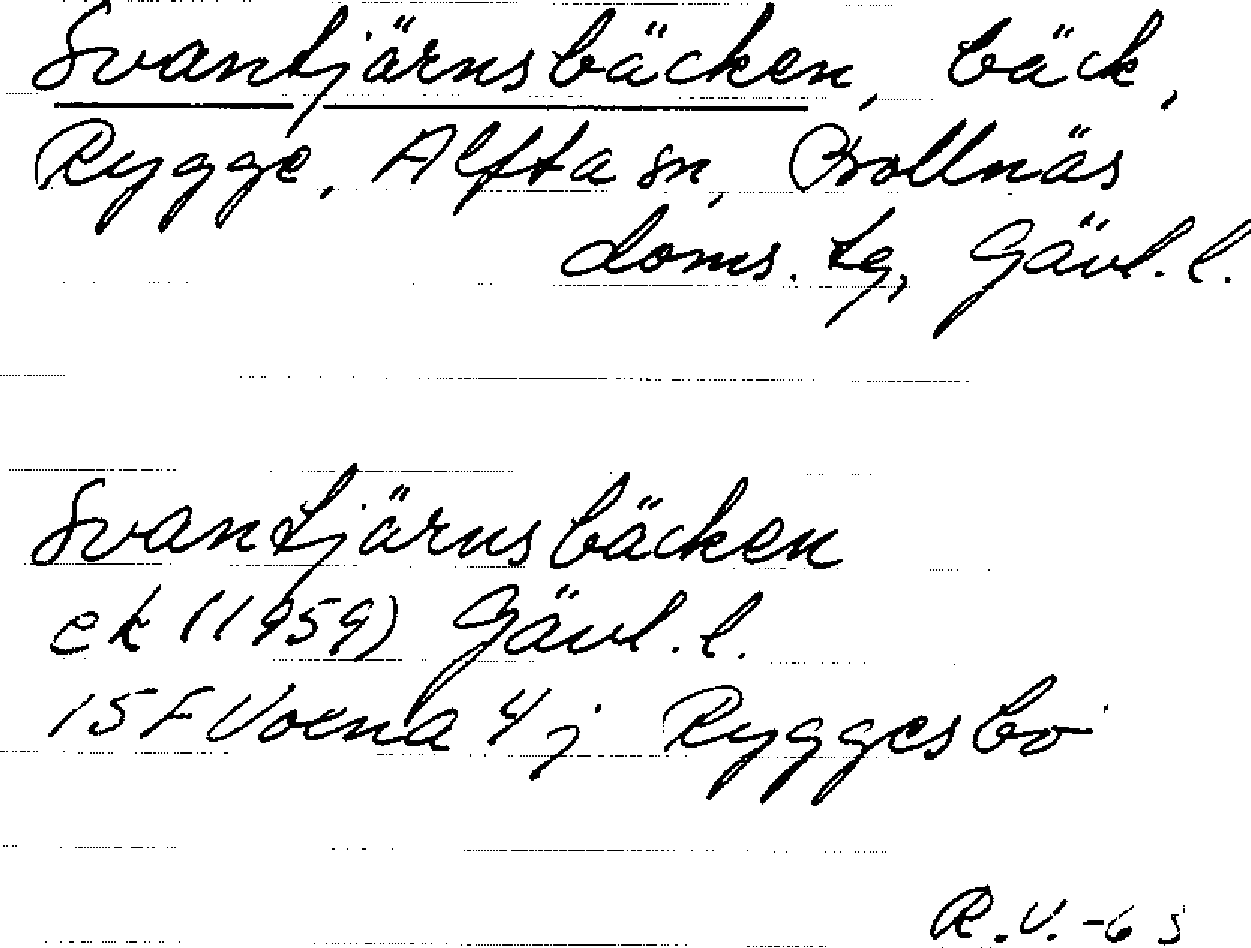 Svantjärnsbäcken, bäck,
Rygge, Alfta sn, Bollnäs
doms. tg, Gävl. l.
Svantjärnsbäcken
ek (1959) Gävl. l.
15F Voxna 4 j Ryggesbo
R.V. -65